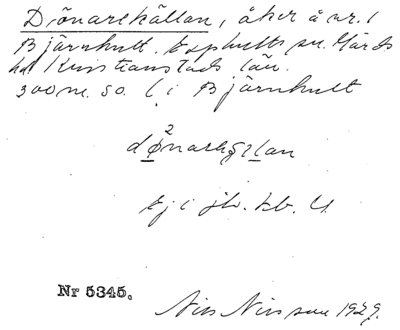 Dönarekällan, åker å nr. 1
Bjärnhult. Exphults sn. Gärds
hd Kristianstads län.
300 m. so. l. i Bjärnhult
Ej i jb. kb. U.
Nr 5345.
Nils Nilsson 1929.